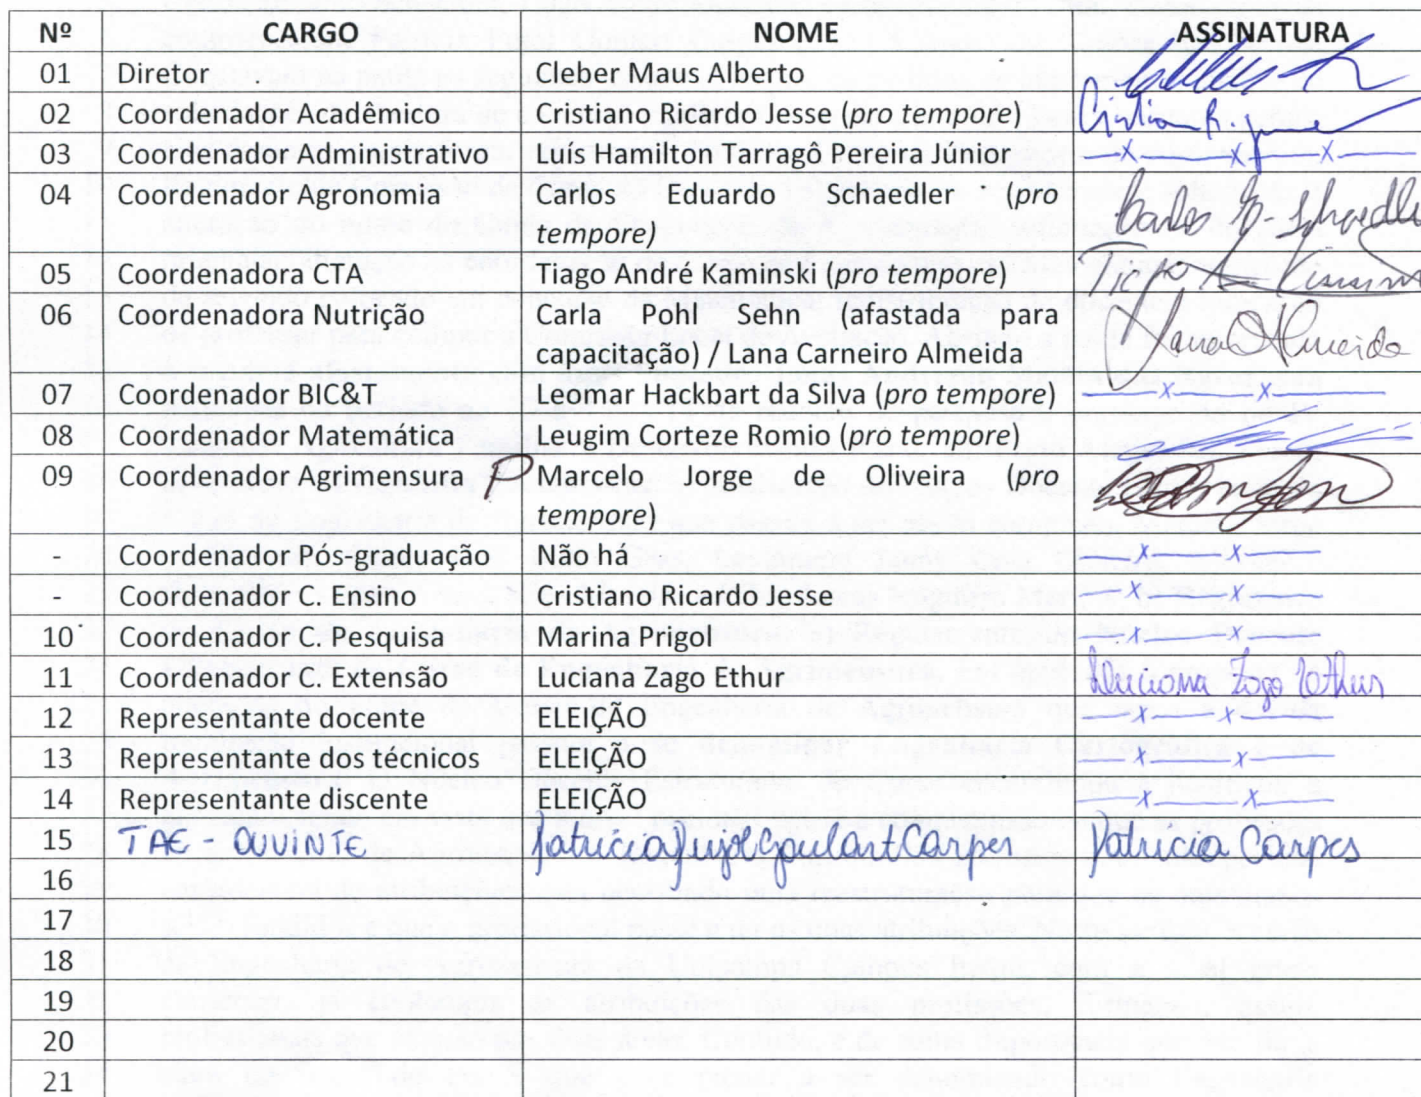 Nº CARGO NOME ASSINATURA
01 Diretor Cleber Maus Alberto
02 Coordenador Acadêmico Cristiano Ricardo Jesse (pro tempore) Cristiano R. Jesse
03 Coordenador Administrativo Luís Hamilton Tarragô Pereira Júnior —x—x—x—
04 Coordenador Agronomia Carlos Eduardo Schaedler (pro
tempore) Carlos E. Schaedler
05 Coordenadora CTA Tiago André Kaminski (pro tempore) Tiago A. Kaminski
06 Coordenadora Nutrição Carla Pohl Sehn (afastada para
capacitação) / Lana Carneiro Almeida Lana C Almeida
07 Coordenador BIC&T Leomar Hackbart da Silva (pro tempore) —x—x—
08 Coordenador Matemática Leugim Corteze Romio (pro tempore)
09 Coordenador Agrimensura P Marcelo Jorge de Oliveira (pro
tempore)
- Coordenador Pós-graduação Não há x—x—
- Coordenador C. Ensino Cristiano Ricardo Jesse —x—x—
10 Coordenador C. Pesquisa Marina Prigol —x—x—
11 Coordenador C. Extensão Luciana Zago Ethur Luciana Zago Ethur
12 Representante docente ELEIÇÃO —x—x—
13 Representante dos técnicos ELEIÇÃO —x—x—
14 Representante discente ELEIÇÃO —x—x—
15 TAE - OUVINTE Patrícia Pujol Goulart Carpes Patrícia Carpes
16
17
18
19
20
21